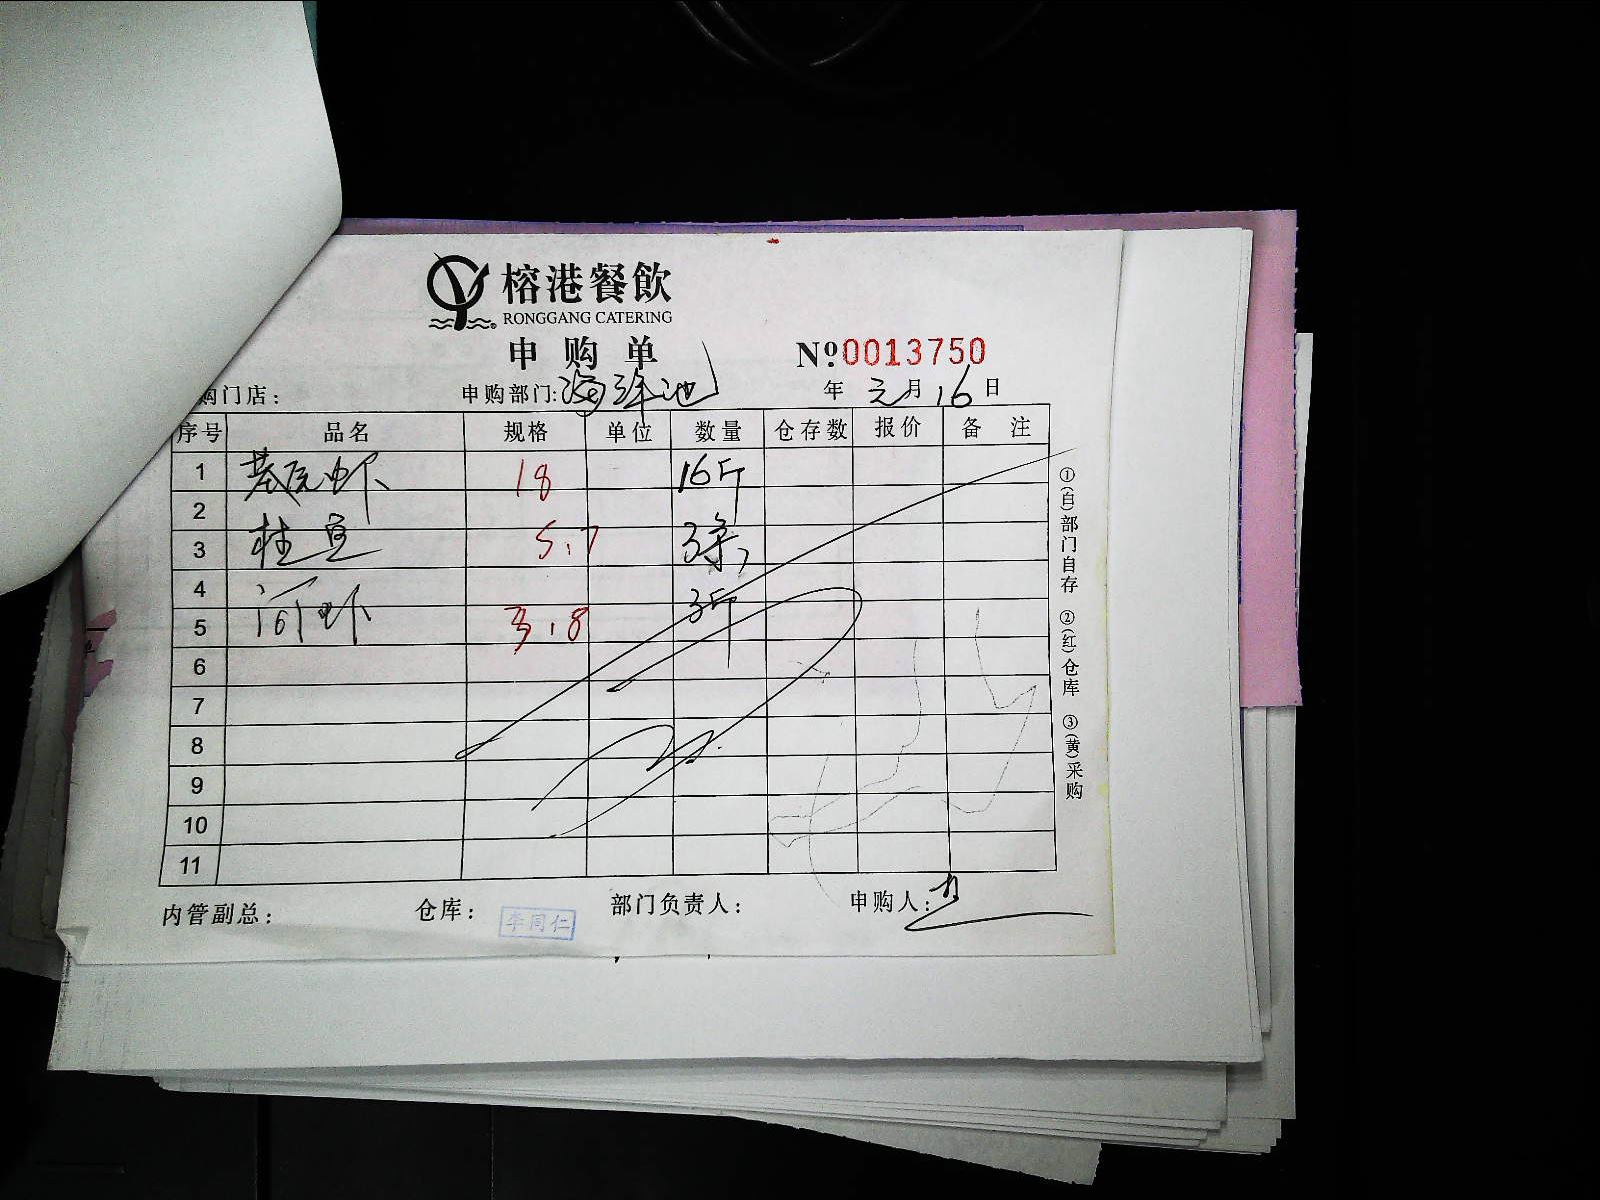 榕港餐飲
RONGGANG CATERING
申购单
№0013750
购门店： 申购部门:海鲜池 年 元月 16日
序号 品名 规格 单位 数量 仓存数 报价 备 注
1 基尾虾 18 16斤
2
3 桂鱼 5.7 3条
4
5 河虾 3.8 3斤
6
7
8
9
10
11
①(白)部门自存 ②(红)仓库 ③(黄)采购
内管副总： 仓库： 李同仁 部门负责人： 申购人：